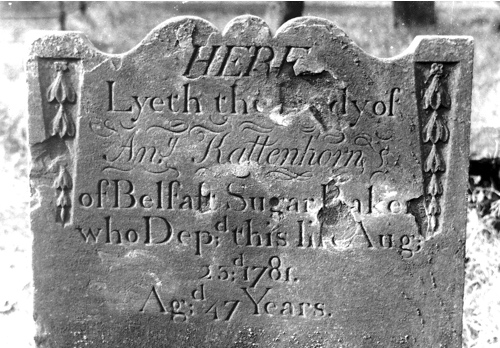 HERE
Lyeth the Body of
An:y Kattenhorn,s
of Belfaſt Sugar Baker
who Dep:d this life Aug:
23:d 1781.
Ag:d 47 Years.